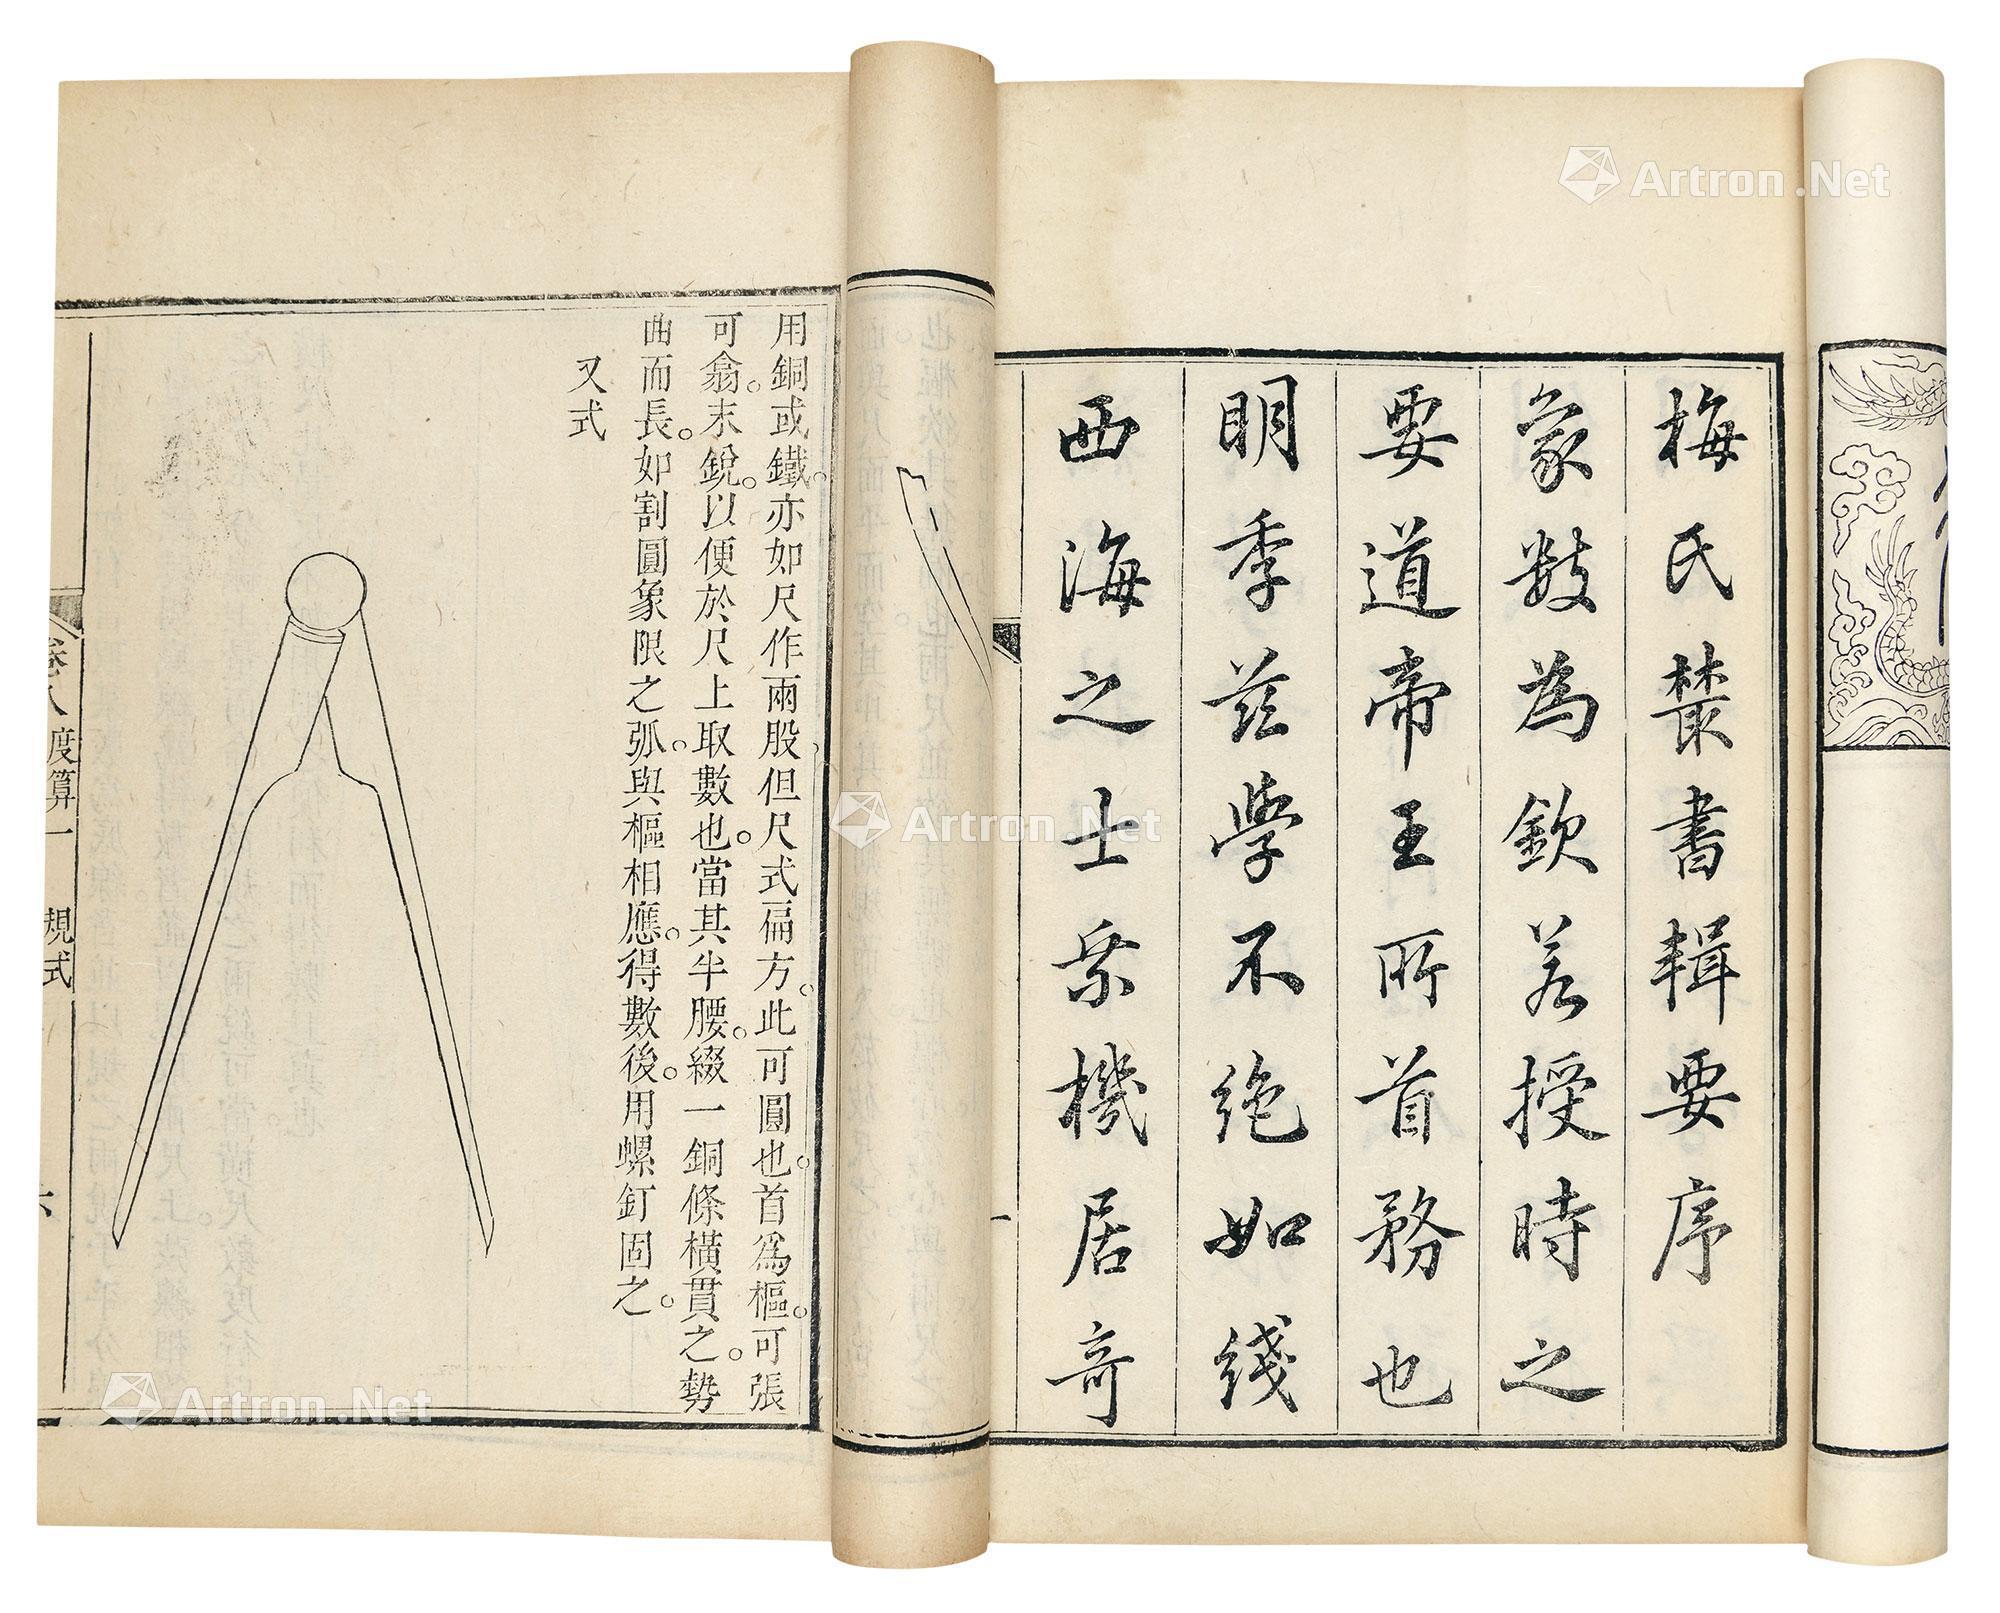 梅氏叢書輯要序
象數為欽若授時之
要道帝王所首務也
明季茲學不絶如綫
西海之士乘機居奇
一
用銅或鐵。亦如尺作兩股。但尺式扁方。此可圓也。首爲樞。可張
可翕。末銳。以便於尺上取數也。當其半腰。綴一銅條橫貫之。勢
曲而長。如割圓象限之弧。與樞相應。得數後。用螺釘固之。
又式
卷八 度算一 規式
六
Artron.Net
Artron.Net
Artron.Net